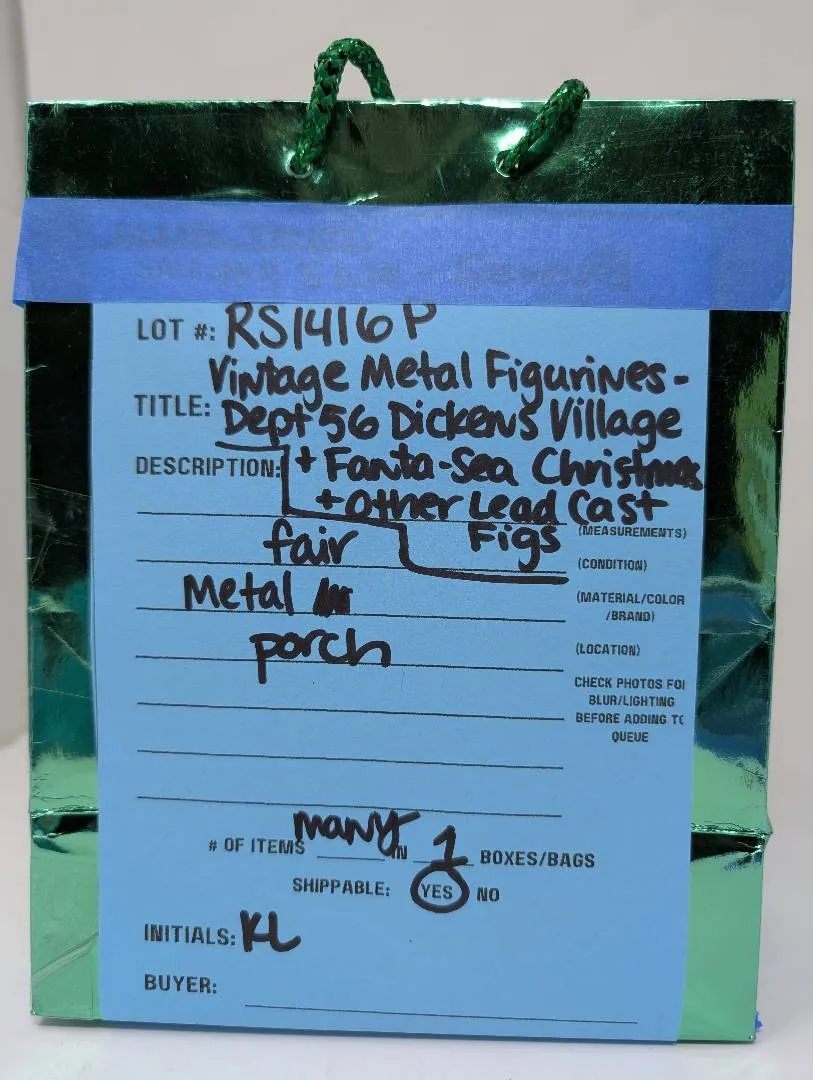 LOT #: RS1416P
Vintage Metal Figurines-
TITLE: Dept 56 Dickens Village
DESCRIPTION: + Fanta-Sea Christmas
+ Other Lead Cast
Figs (MEASUREMENTS)
fair (CONDITION)
Metal (MATERIAL/COLOR
/BRAND)
porch (LOCATION)
CHECK PHOTOS FO
BLUR/LIGHTING
BEFORE ADDING TO
QUEUE
# OF ITEMS many IN 1 BOXES/BAGS
SHIPPABLE: YES NO
INITIALS: KL
BUYER: